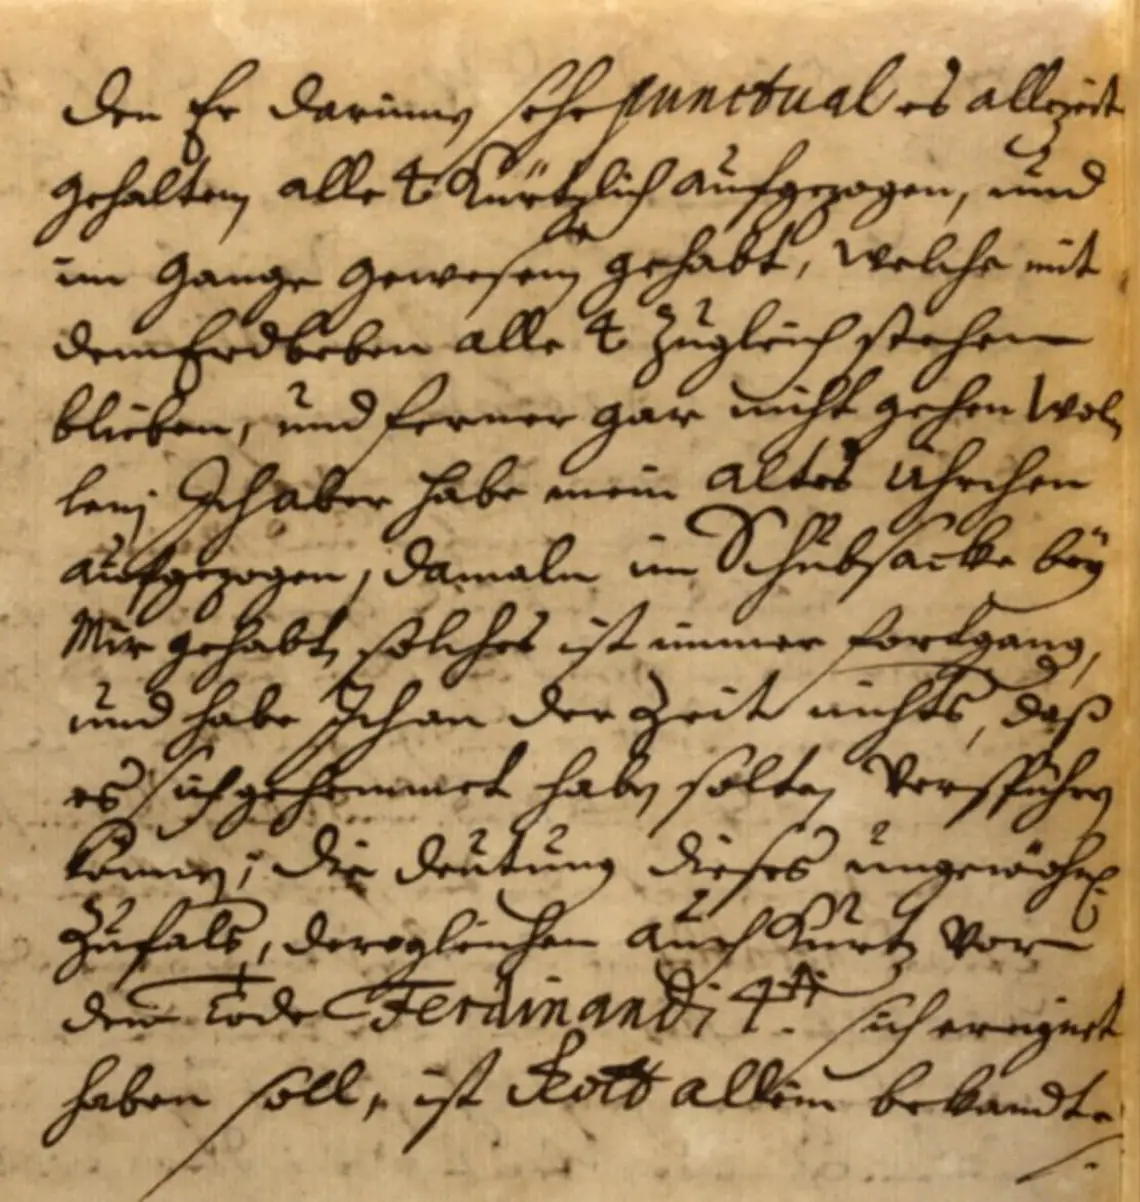 den Er darinnen sehr punctual es allezeit
gehalten, alle 4 Kürtzlich aufgezogen, und
im Gange gewesen gehabt, welche mit
dem Erdbeben alle 4 zugleich stehen
blieben, und ferner gar nicht gehen wol,
len; Ich aber habe mein altes Uhrchen
aufgezogen, damaln im Schubsacke beÿ
Mir gehabt, solches ist immer fortgang,
und habe Ich an der Zeit nichts, daß
es sich gehemmet haben solten verspühren
können; die deutung dieses ungewöhnl.
Zufals, dergleichen auch Kurtz vor
dem Tode Ferdinandi 4ti. sich ereignet
haben soll, ist Gott allein bekandt.